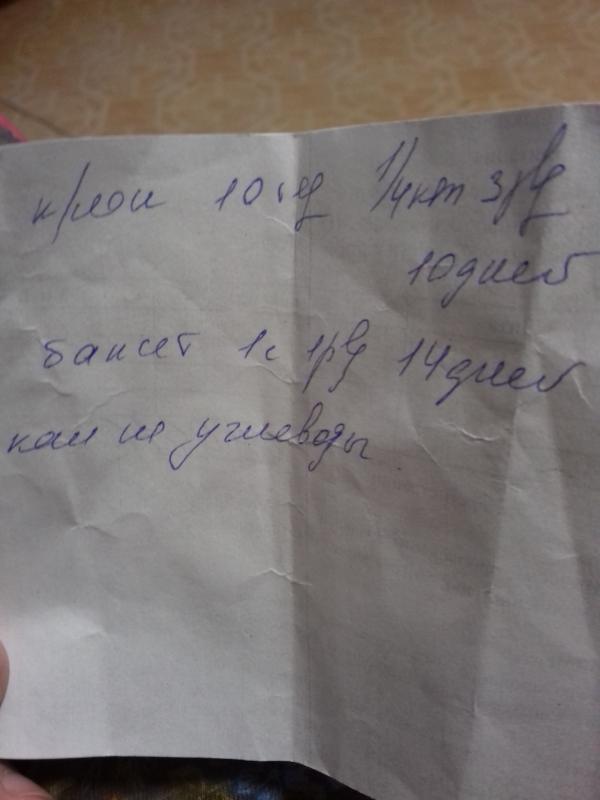 к/лои 10 ед 1/4 кт 3рд
10 дней
баксет 1с 1рд 14 дней
кал на углеводы